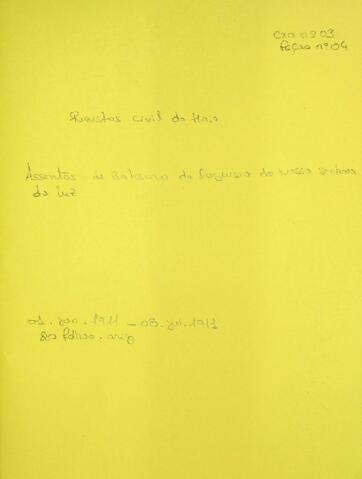 Cxa nº 03
Peça nº 04
Registos Civil do Maio
Assentos de Batismo da Freguesia de Nossa Senhora
da Luz
01. jan. 1911 - 08. jul. 1911
80 fólios. orig